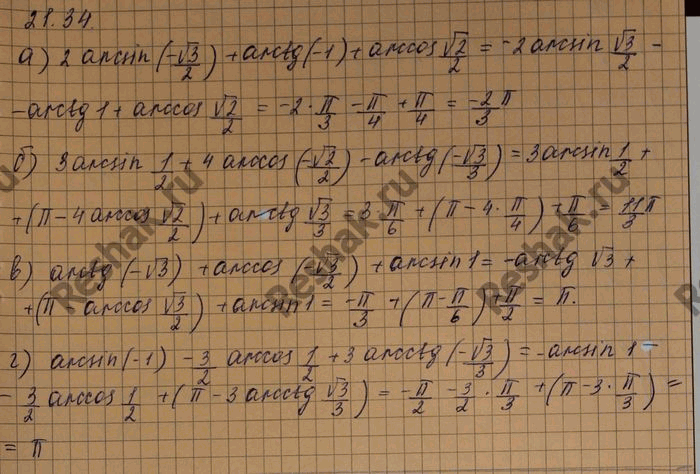 21.34.
а) 2 arcsin (-√3/2) + arctg(-1) + arccos √2/2 = -2 arcsin √3/2 -
- arctg 1 + arccos √2/2 = -2 · π/3 - π/4 + π/4 = -2/3 π
б) 3 arcsin 1/2 + 4 arccos (-√2/2) - arctg (-√3/3) = 3 arcsin 1/2 +
+ (π - 4 arccos √2/2) + arctg √3/3 = 3 π/6 + (π - 4 · π/4) + π/6 = 11π/3
в) arctg (-√3) + arccos (-√3/2) + arcsin 1 = -arctg √3 +
+ (π arccos √3/2) + arcsin 1 = -π/3 + (π - π/6) + π/2 = π.
г) arcsin (-1) - 3/2 arccos 1/2 + 3 arcctg (-√3/3) = -arcsin 1 -
- 3/2 arccos 1/2 + (π - 3 arcctg √3/3) = -π/2 - 3/2 · π/3 + (π - 3 · π/3) =
= π
Reshak.ru
Reshak.ru
Reshak.ru